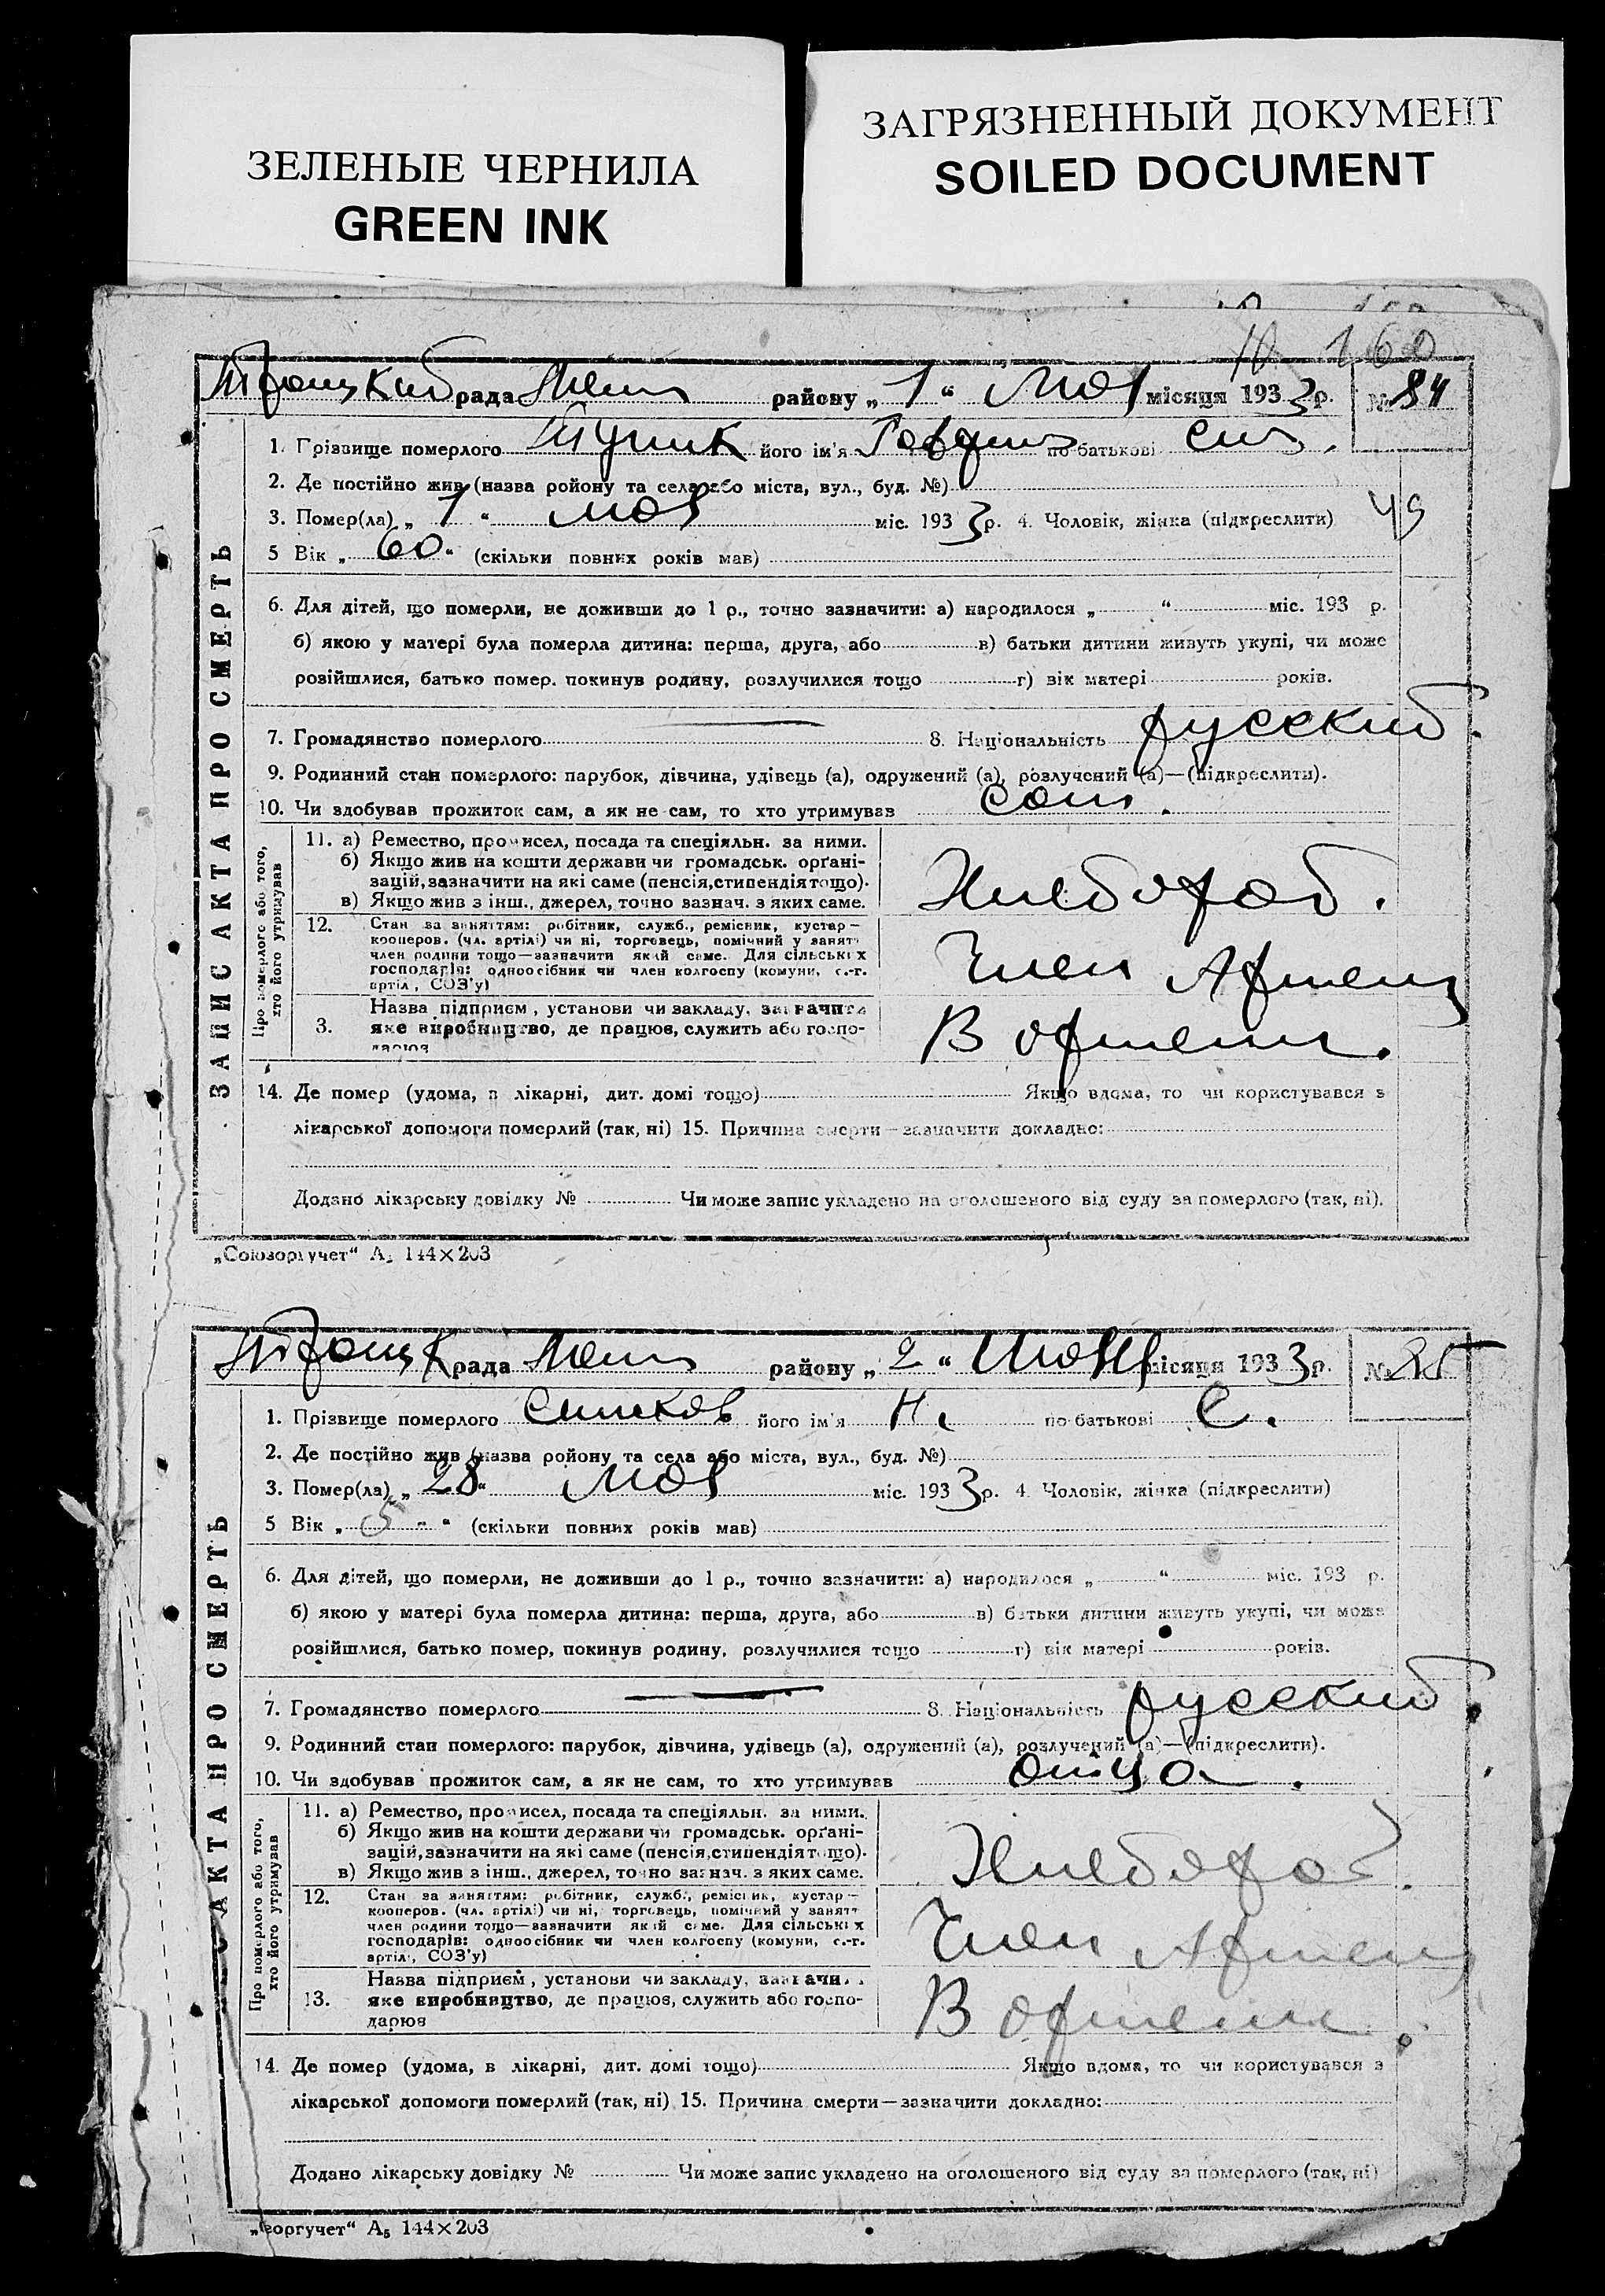 ЗЕЛЕНЫЕ ЧЕРНИЛА
GREEN INK
ЗАГРЯЗНЕННЫЙ ДОКУМЕНТ
SOILED DOCUMENT
160
рада району „ 1 “ мая місяця 1933 р. № 84
1. Прізвище померлого його ім'я по батькові
2. Де постійно жив (назва ройону та села або міста, вул., буд. №)
3. Помер(ла) „ 1 “ мая міс. 1933 р. 4. Чоловік, жінка (підкреслити)
49
5 Вік „ 60 “ (скільки повних років мав)
6. Для дітей, що померли, не доживши до 1 р., точно зазначити: а) народилося „ “ міс. 193 р.
б) якою у матері була померла дитина: перша, друга, або в) батьки дитини живуть укупі, чи може
розійшлися, батько помер, покинув родину, розлучилися тощо г) вік матері років.
7. Громадянство померлого 8. Національність русский.
9. Родинний стан померлого: парубок, дівчина, удівець (а), одружений (а), розлучений (а)—(підкреслити).
10. Чи здобував прожиток сам, а як не сам, то хто утримував сам.
ЗАПИС АКТА ПРО СМЕРТЬ
Про померлого або того,
хто його утримував
11. а) Ремество, промисел, посада та спеціяльн. за ними.
б) Якщо жив на кошти держави чи громадськ. орґані-
зацій, зазначити на які саме (пенсія, стипендія тощо).
в) Якщо жив з інш., джерел, точно зазнач. з яких саме.
Хлебороб.
12. Стан за заняттям: робітник, служб., ремісник, кустар—
кооперов. (чл. артілі) чи ні, торговець, помічний у занятт
член родини тощо—зазначити який саме. Для сільських
господарів: одноосібник чи член колгоспу (комуни, с.-г.
артіл, СОЗ'у)
Член Артели
Назва підприєм, установи чи закладу, зазначити
3. яке виробництво, де працює, служить або госпо-
дарює
В артели.
14. Де помер (удома, в лікарні, дит. домі тощо) Якщо вдома, то чи користувався з
лікарської допомоги померлий (так, ні) 15. Причина смерти—зазначити докладно:
Додано лікарську довідку № Чи може запис укладено на оголошеного від суду за померлого (так, ні).
„Союзоргучет“ А5 144×203
рада району „ 2 “ Июня місяця 1933 р. № 85
1. Прізвище померлого його ім'я Н. по батькові С.
2. Де постійно жив (назва ройону та села або міста, вул., буд. №)
3. Помер(ла) „ 28 “ мая міс. 1933 р. 4 Чоловік, жінка (підкреслити)
5 Вік „ 5 “ (скільки повних років мав)
6. Для дітей, що померли, не доживши до 1 р., точно зазначити: а) народилося „ “ міс. 193 р.
б) якою у матері була померла дитина: перша, друга, або в) батьки дитини живуть укупі, чи може
розійшлися, батько помер, покинув родину, розлучилися тощо г) вік матері років.
7. Громадянство померлого 8. Національність русский
9. Родинний стан померлого: парубок, дівчина, удівець (а), одружений (а), розлучений (а)—(підкреслити).
10. Чи здобував прожиток сам, а як не сам, то хто утримував отца.
АКТА ПРО СМЕРТЬ
Про померлого або того,
хто його утримував
11. а) Ремество, промисел, посада та спеціяльн. за ними.
б) Якщо жив на кошти держави чи громадськ. орґані-
зацій, зазначити на які саме (пенсія, стипендія тощо).
в) Якщо жив з інш., джерел, точно зазнач. з яких саме.
Хлебороб.
12. Стан за заняттям: робітник, служб., ремісник, кустар—
кооперов. (чл. артілі) чи ні, торговець, помічний у занятт
член родини тощо—зазначити який саме. Для сільських
господарів: одноосібник чи член колгоспу (комуни, с.-г.
артіл, СОЗ'у)
Член Артели
Назва підприєм, установи чи закладу, зазначи
13. яке виробництво, де працює, служить або госпо-
дарює
В артели.
14. Де помер (удома, в лікарні, дит. домі тощо) Якщо вдома, то чи користувався з
лікарської допомоги померлий (так, ні) 15. Причина смерти—зазначити докладно:
Додано лікарську довідку № Чи може запис укладено на оголошеного від суду за померлого (так, ні)
оргучет“ А5 144×203